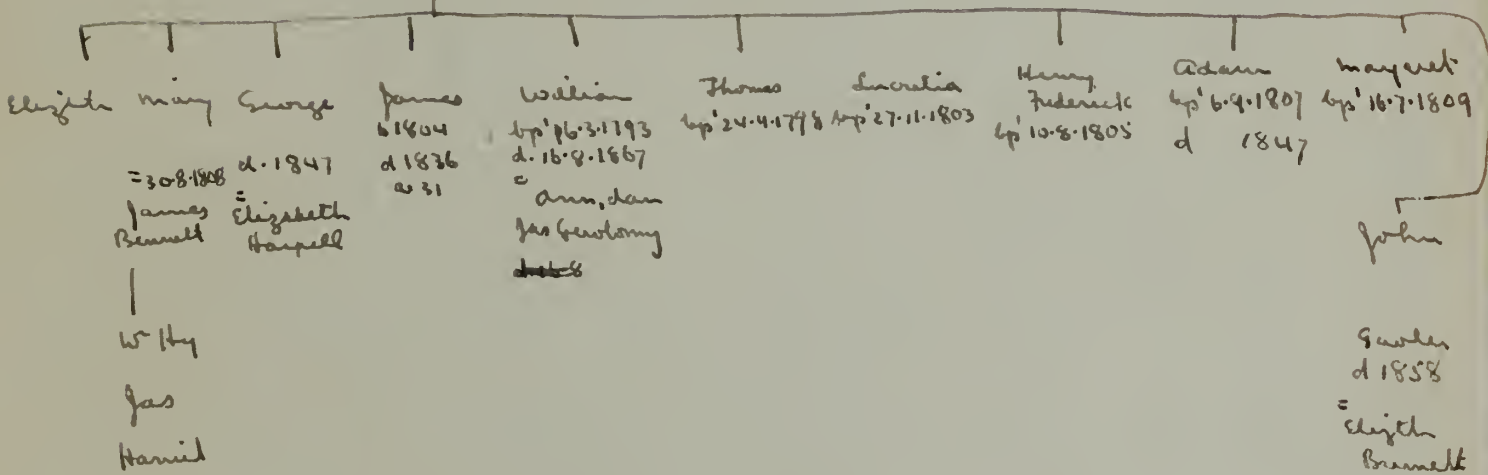 Elizth
Mary
= 30.8.1808
James
Bennett
W Hy
Jas
Harriet
George
d. 1847
=
Elizabeth
Harpell
James
b 1804
d 1836
ae 31
William
bp' 6.3.1793
d. 16.8.1867
=
Ann, dau
Jas
d 16 8
Thomas
bp' 24.4.1798
Lucretia
bp' 27.11.1803
Henry
Frederick
bp' 10.8.1805
Adam
bp' 6.9.1807
d 1847
Margaret
bp' 16.7.1809
John
d 1858
=
Elizth